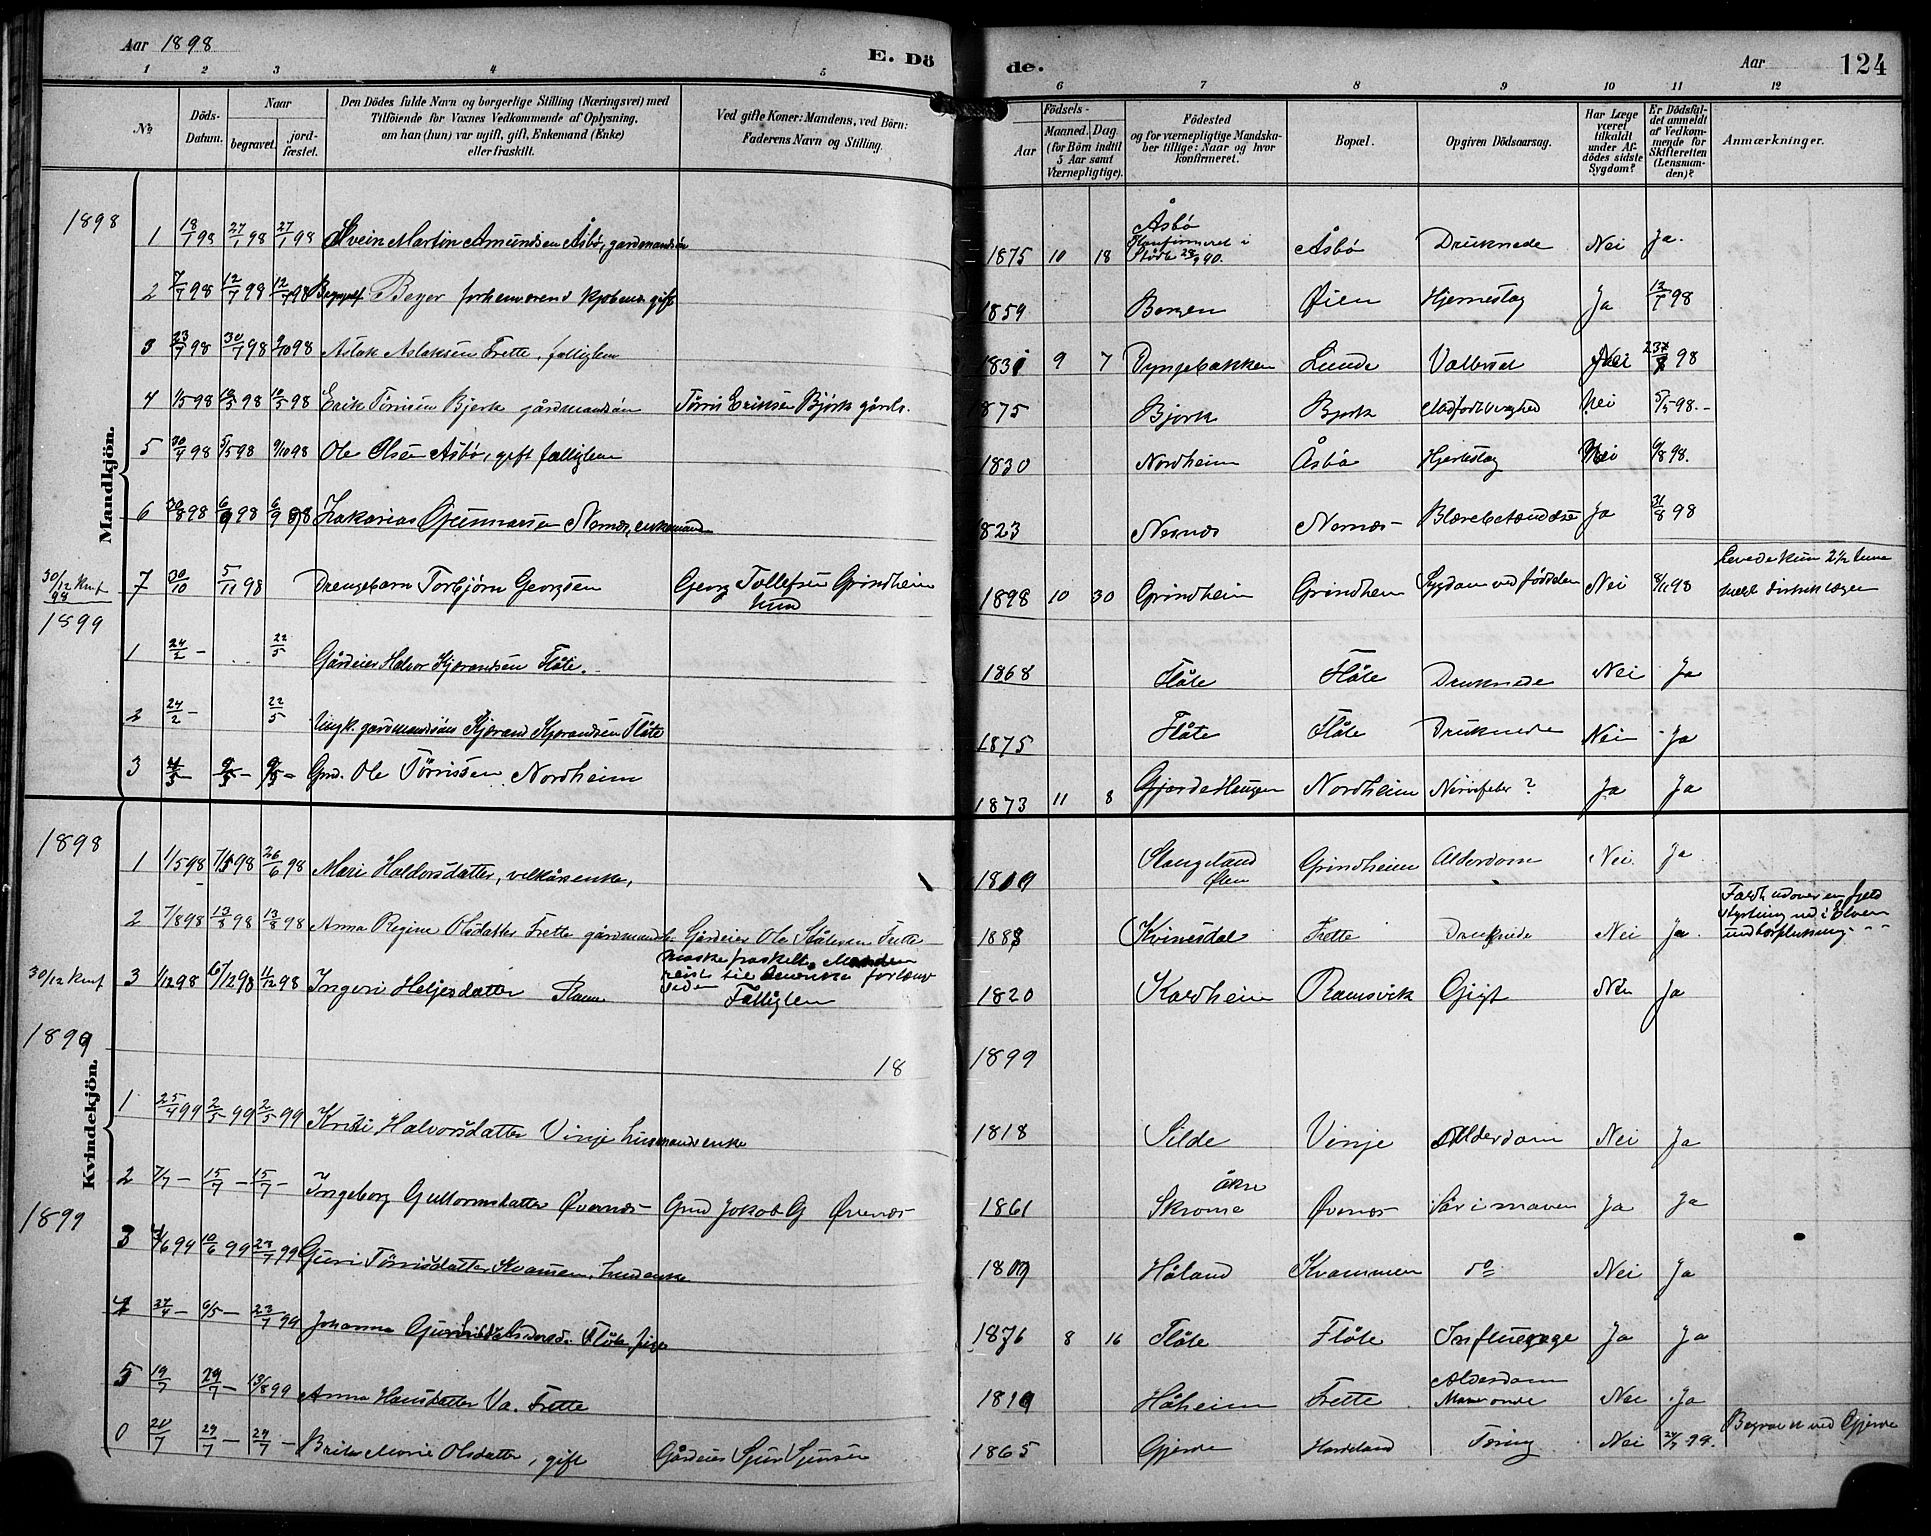 Aar 1898
E. Dö
de.
Aar
124
1 2 3 4 5 6 7 8 9 10 11 12
№
Döds-Datum.
Naar
begravet.
jord-fæstet.
Den Dödes fulde Navn og borgerlige Stilling (Næringsvei) med
Tilföiende for Voxnes Vedkommende af Oplysning,
om han (hun) var ugift, gift, Enkemand (Enke)
eller fraskilt.
Ved gifte Koner: Mandens, ved Börn:
Faderens Navn og Stilling.
Födsels-
Aar
Maaned. Dag
(for Börn indtil
5 Aar samt
Værnepligtige).
Födested
og for værnepligtige Mandska-
ber tillige: Naar og hvor
konfirmeret.
Bopæl.
Opgiven Dödsaarsag.
Har Læge
været
tilkaldt
under Af-
dödes sidste
Sygdom?
Er Dödsfal-
det anmeldt
af Vedkom-
mende for
Skifteretten
(Lensman-
den)?
Anmærkninger.
Mandkjön.
1898
1 18/1 98 27/1 98 27/1 98 Svein Martin Amundsen Åsbø, gardmandsøn 1875 10 18 Åsbø Konfirmeret i 90. Åsbø Druknede Nei Ja.
2 7/7 98 12/7 98 12/7 98 Beyer forhenværend kjøbm. gift 1859 Bergen Øien Hjerneslag Ja 12/7 98
3 23/7 98 30/7 98 2/10 98 Aslak Aslaksen Frette, falliglem 1831 9 7 Dyngebakken Lunde Nei 98
4 1/5 98 12/5 98 12/5 98 Erik Törrisen Bjerk gårdmandsøn Törris Eriksen Björk gårds. 1875 Bjork Bjork Nei 5/5 98.-
5 30/4 98 5/5 98 9/10 98 Ole Olsen Åsbø, gift falliglem 1830 Nordheim Åsbø Hjerteslag Nei 6/8 98.
6 30/8 98 6/9 98 6/9 98 Zakarias Gunnarsen Nernæs, enkemand 1823 Nernæs Nernæs Blærebetændelse Ja 31/8 98
30/12 Kmf 98
7 30/10 5/11 98 Drengebarn Torbjörn Georgsen Georg Tollefsen Grindheim
hmd 1898 10 30 Grindheim Grindheim Sygdom ved födselen Nei 8/11 98 Levede kun 2½ time
meld distriktslægen
1899
1 24/2 - 22/5 Gårdeier Halvor Kjerandsen Flåte. 1868 Flåte Flåte Druknede Nei Ja
2 24/2 - 22/5 Ungk. gardmandssøn Kjerand Kjerandsen Flåte 1875 Flåte Flåte Druknede Nei Ja
3 4/3 - 9/3 - 9/3 - Grd. Ole Törrissen Nordheim 1873 11 8 Gjerde Haugen Nordheim Nervefeber? Ja Ja
Kvindekjön.
1898
1 1/5 98 7/5 98 26/6 98 Mari Haldorsdatter, velkårsenke, 1819 Stangeland
Ølen Grindheim Alderdom Nei. Ja
2 7/8 98 13/8 98 13/8 98 Anna Regine Olsdatter Frette gårdmands. Gårdeier Ole Frette 1888 Kvinesdal Frette Druknede Nei Ja. Faldt udover en fjeld
styrtning ned i Elven
under bærplukning.
30/12 Kmf
3 1/12 98 6/12 98 11/12 98 Ingeri Heljesdatter Ramn maske fraskelt. Manden
reist til Amerika for lang
siden
Falliglem 1820 Kaldheim Ramsvik Gigt Nei Ja
1899
18
1899
1 25/4 99 2/5 99 2/5 99 Kristi Halvorsdatter Vinje husmandsenke 1818 Silde Vinje Alderdom Nei Ja
2 7/7 - 15/7 - 15/7 - Ingeborg Guttormsdatter Øvernæs - Grd Jakob G Øvernæs 1861 Skromme Økre Øvernæs Sår i maven Ja Ja
1899
3 4/6 99 10/6 99 23/7 99 Guri Törrisdatter Kvamen, husenke 1819 Håland Kvammen do Nei Ja
4 27/4 - 6/5 - 23/7 99 Johanna Flåte, pige 1876 8 16 Flåte Flåte Influenza Ja Ja
5 19/7 29/7 - 13/8 99 Anna Hansdatter Va. Frette 1819 Håheim Frette Alderdom
Maveonde Nei Ja
0 20/7 29/7 - 29/7 - Brita Marie Olsdatter, gift Gårdeier Sjur Sjursen 1865 Gjerde Hardeland Tæring Nei 24/7 99. Begravet ved Gjerde